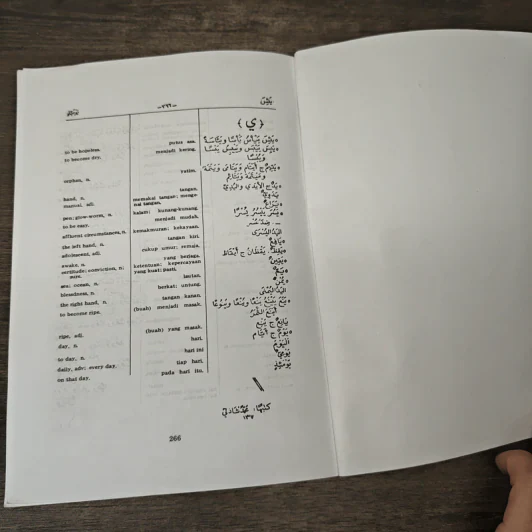 يَوْمَئِذٍ -٢٦٦- يَئِسَ
﴿ ي ﴾
to be hopeless. putus asa. يَئِسَ يَيْأَسُ يَأْسًا
to become dry. menjadi kering. يَبِسَ يَيْبَسُ
orphan, n. yatim. يَتِيمٌ ج أَيْتَامٌ
hand, n. tangan. يَدٌ ج الأَيْدِي
manual, adj. memakai tangan; mengenai tangan. يَدَوِيٌّ
glow-worm, n. kalam; kunang-kunang. يَرَاعٌ
to be easy. menjadi mudah. يَسُرَ يَيْسُرُ يُسْرًا
affluent circumstances, n. kemakmuran; kekayaan.
the left hand, n. tangan kiri. اليَدُ اليُسْرَى
adolescent, adj. cukup umur; remaja. يَافِعٌ
awake, n. yang berjaga. يَقْظَانٌ ج أَيْقَاظٌ
certitude; conviction, n. ketentuan; kepercayaan yang kuat; pasti. يَقِينٌ
sea; ocean, n. lautan. يَمٌّ
blessedness, n. berkat; untung. يُمْنٌ
the right hand, n. tangan kanan. اليَدُ اليُمْنَى
to become ripe. (buah) menjadi masak. يَنَعَ
أَيْنَعَ الثَّمَرُ
ripe, adj. (buah) yang masak. يَانِعٌ ج يَنْعٌ
day, n. hari. يَوْمٌ ج أَيَّامٌ
to day, n. hari ini اليَوْمَ
daily, adv: every day. tiap hari. يَوْمِيٌّ
on that day. pada hari itu. يَوْمَئِذٍ
266